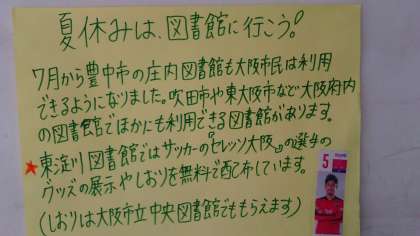 夏休みは、図書館に行こう!
7月から豊中市の庄内図書館も大阪市民は利用
できるようになりました。吹田市や東大阪市など大阪府内
の図書館でほかにも利用できる図書館があります。
★東淀川図書館ではサッカーの『セレッソ大阪』の選手の
グッズの展示やしおりを無料で配布しています。
(しおりは大阪市立中央図書館でももらえます)
5